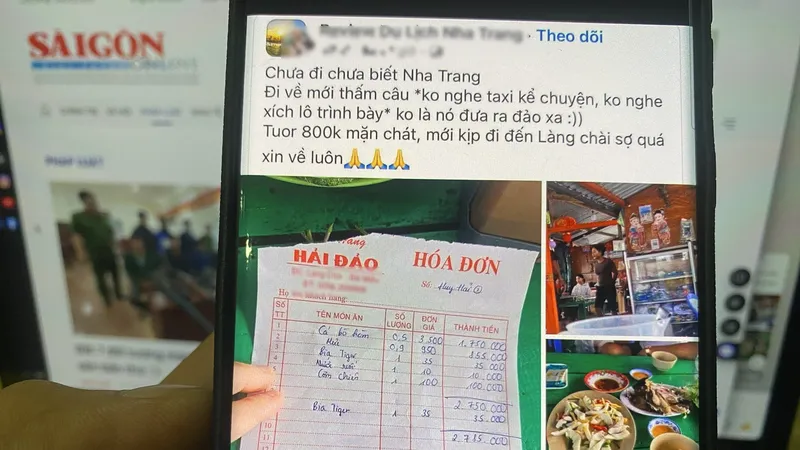 SÀIGÒN
PHÁP LUẬT
Theo dõi
Chưa đi chưa biết Nha Trang
Đi về mới thấm câu *ko nghe taxi kể chuyện, ko nghe
xích lô trình bày* ko là nó đưa ra đảo xa :))
Tuor 800k mặn chát, mới kịp đi đến Làng chài sợ quá
xin về luôn🙏🙏🙏
HẢI ĐẢO
HÓA ĐƠN
Số: Huy Hai
Họ tên khách hàng:
Số TT TÊN MÓN ĂN SỐ LƯỢNG ĐƠN GIÁ THÀNH TIỀN
1 Cá bò hòm 0,5 3.500 1.750.000
2 0,9 950 855.000
3 Bia Tiger 1 35 35.000
1 10 10.000
5 Cơm chiên 1 100 100.000
2.750.000
Bia Tiger 1 35 35.000
10
11 2.785.000